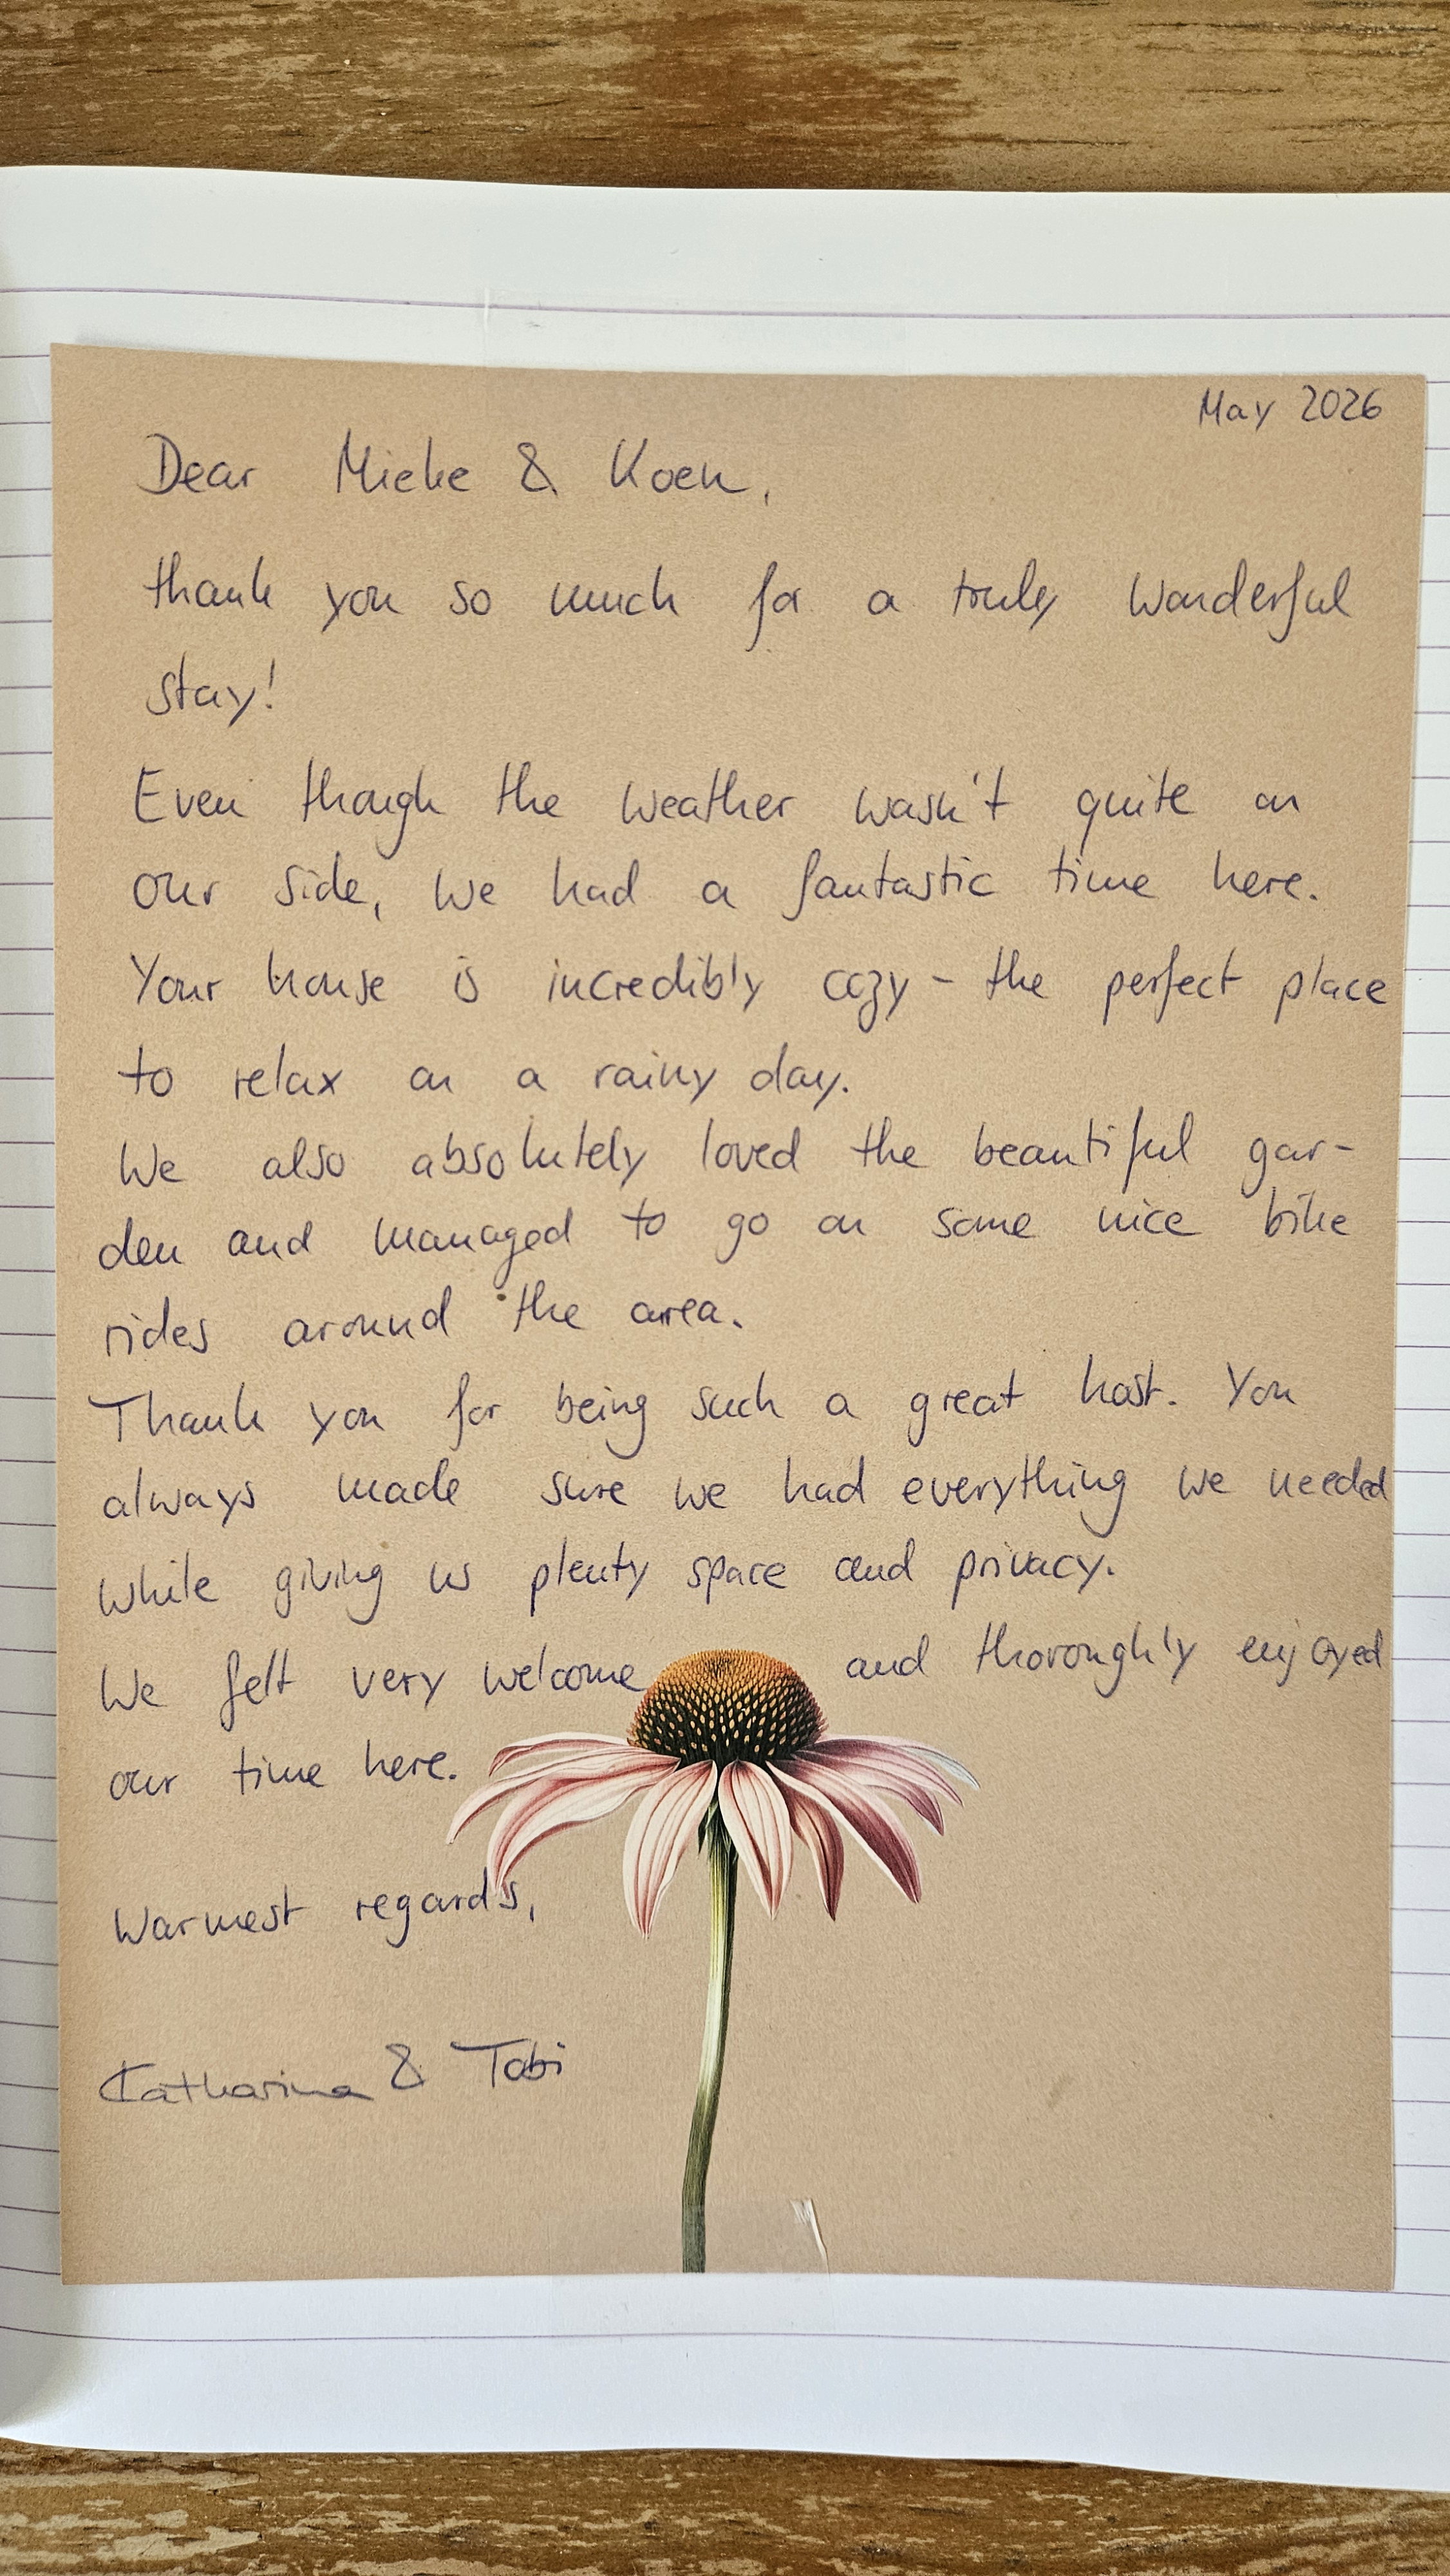 May 2026
Dear Mieke & Koen,
thank you so much for a truly wonderful
stay!
Even though the weather wasn't quite on
our side, we had a fantastic time here.
Your house is incredibly cozy - the perfect place
to relax on a rainy day.
We also absolutely loved the beautiful gar-
den and managed to go on some nice bike
rides around the area.
Thank you for being such a great host. You
always made sure we had everything we needed
while giving us plenty space and privacy.
We felt very welcome and thoroughly enjoyed
our time here.
Warmest regards,
Katharina & Tobi